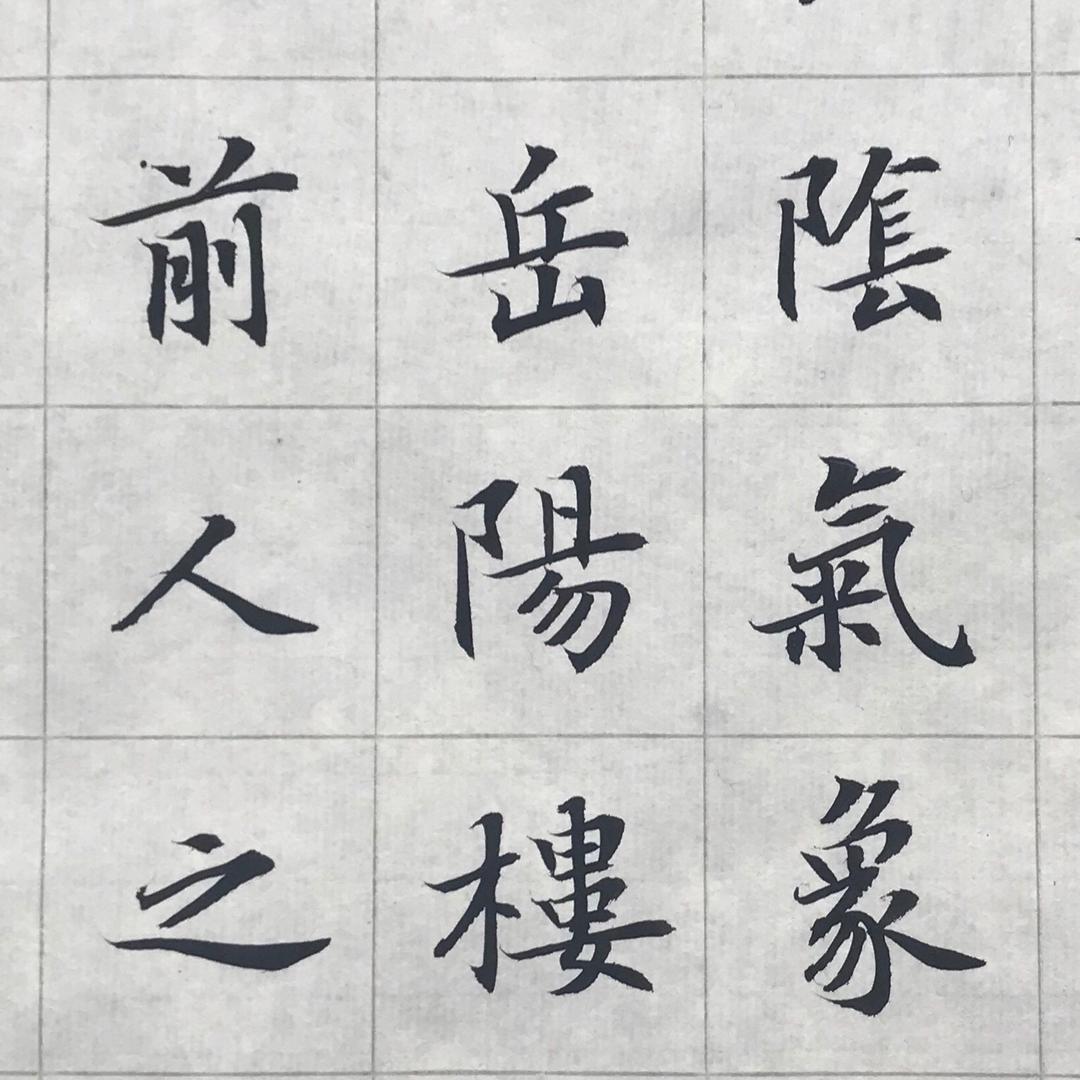 隂氣象
岳陽樓
前人之